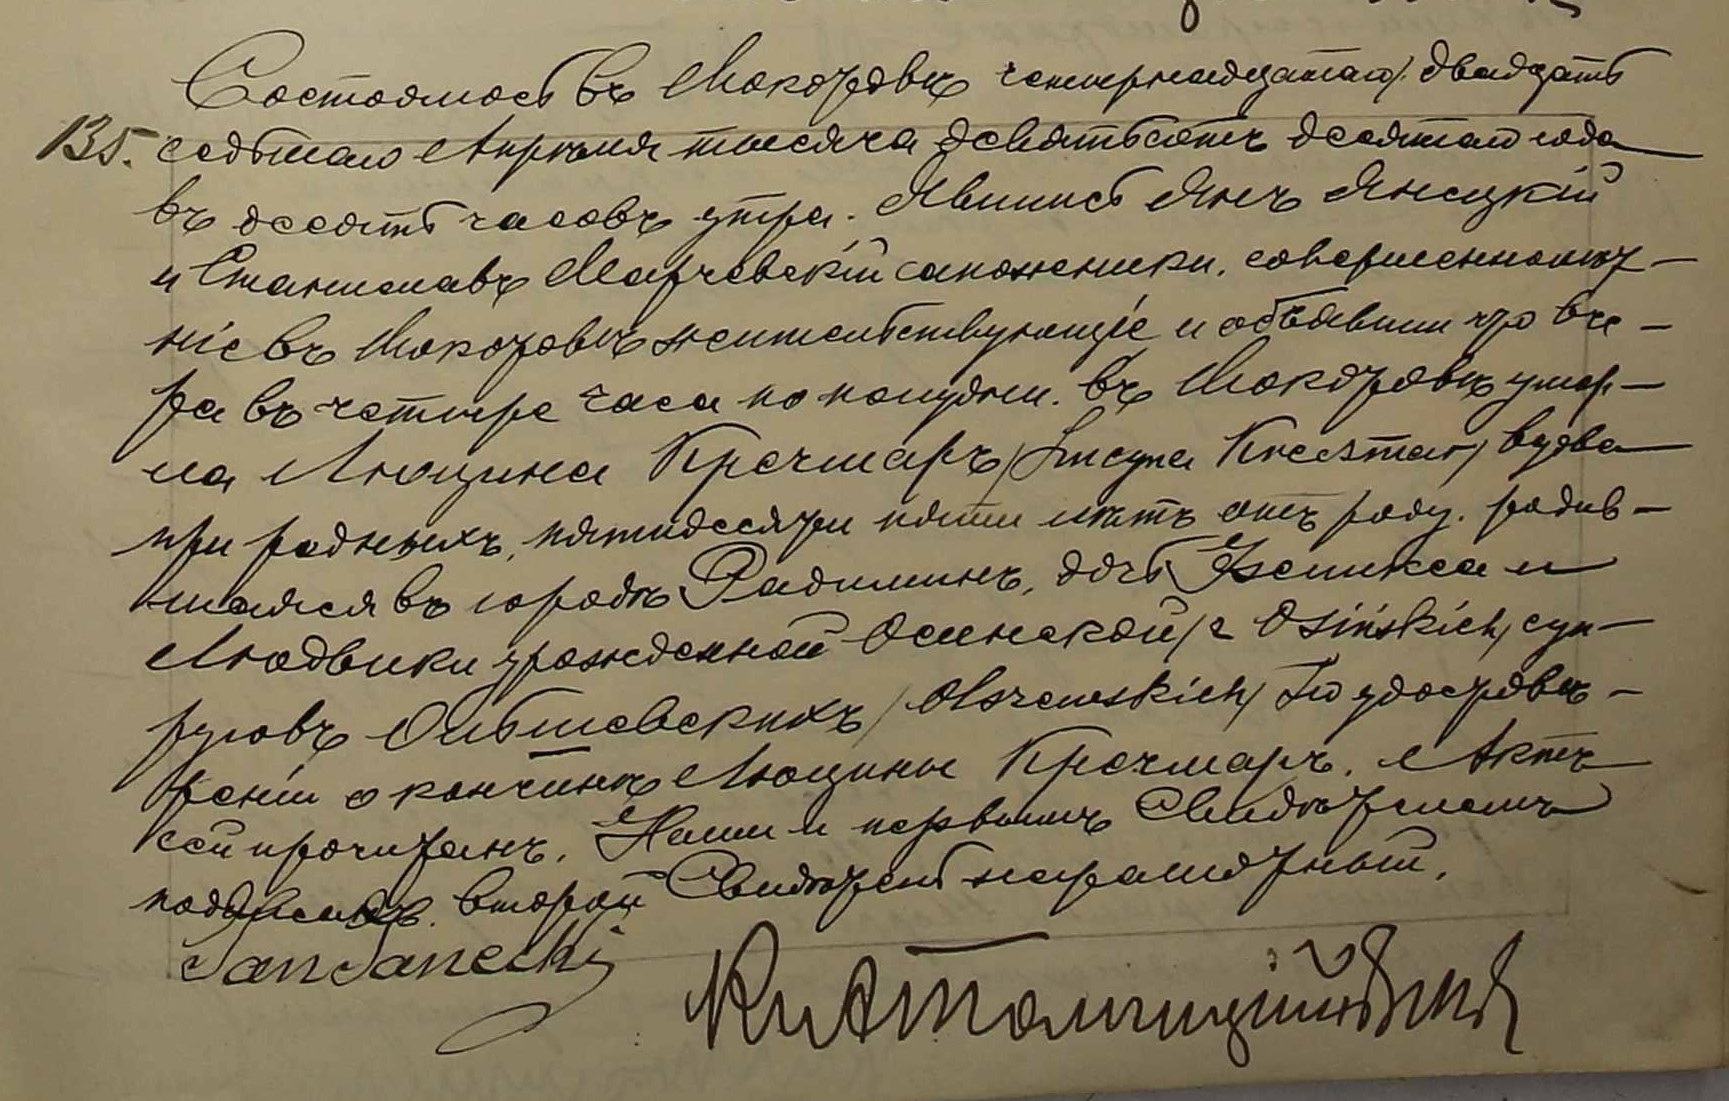 135.
Состоялось въ Мокотовѣ четырнадцатаго/двадцать
седьмаго Апрѣля тысяча девятьсотъ десятаго года
въ десять часовъ утра. Явились Янъ Янецкій
и Станиславъ Марчевскій сапожники, совершеннолѣт-
ніе въ Мокотовѣ жительствующіе и объявили что вче-
ра въ четыре часа по полудни въ Мокотовѣ умер-
ла Люцина Кречмаръ /Lucyna Kreczmar/ вдова
при родныхъ, пятидесяти пяти лѣтъ отъ роду, родив-
шаяся въ городѣ Радиминѣ, дочь Феликса и
Людвики урожденной Осинской /z Osińskich/ суп-
руговъ Ольшевскихъ /Olszewskich/ По удостовѣ-
реніи о кончинѣ Люцины Кречмаръ. Актъ
сей прочитанъ, Нами и первымъ Свидѣтелемъ
подписанъ. второй Свидѣтель неграмотный.
Jan Janecki